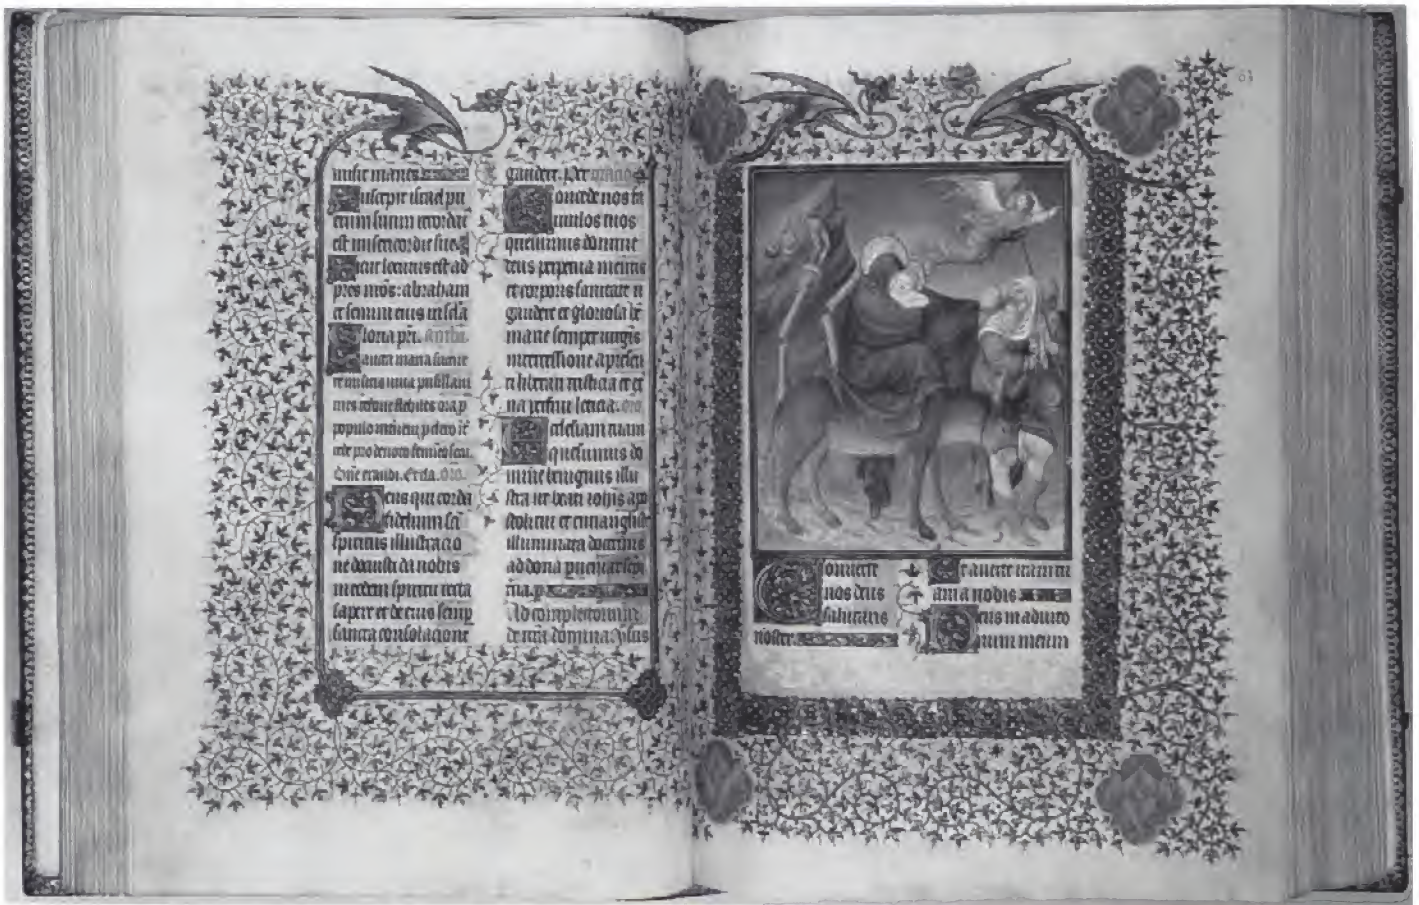 misit inanes
Suscepit israel pu
erum suum recordat
est misericordie sue
Sicut locutus est ad
pres nros: abraham
et semini eius in scla
Gloria pri.
Sancta maria succure
re miseris iuva pusillani
mes refove flebiles ora p
populo interveni p clero
Dne exaudi.
Deus qui corda
fidelium sci
spiritus illustracio
ne docuisti da nobis
in eodem spiritu recta
sapere et de eius semp
sancta consolacione
gaudere. Per oracio
Concede nos fa
mulos tuos
quesumus domine
deus perpetua mentis
et corporis sanitate
gaudere et gloriosa be
marie semper virgis
intercessione a presen
ti liberari tristicia et et
na perfrui leticia.
Ecclesiam tuam
quesumus do
mine benignus illu
stra ut beati iohis apo
stoli tui et euvangliste
illuminata doctrinis
ad dona pveniat sepi
Ad completorium
de nra domina
63
Converte
nos deus
salutaris
noster
Et averte iram tu
am a nobis
Deus in adiuto
rium meum